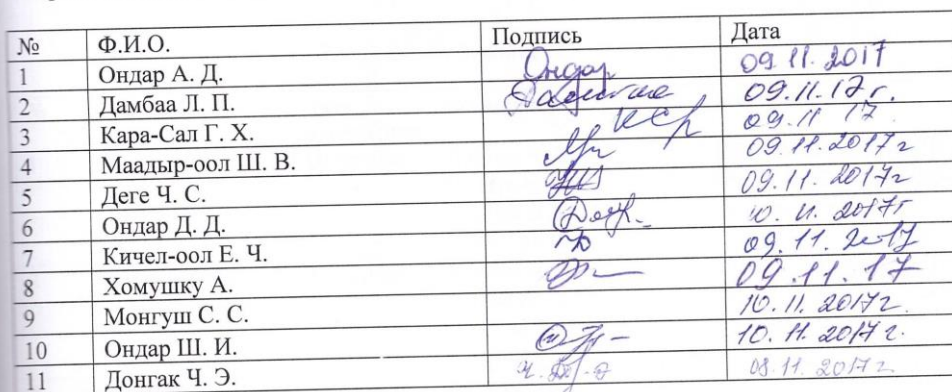 № Ф.И.О. Подпись Дата
1 Ондар А. Д. Ондар 09.11.2017
2 Дамбаа Л. П. 09.11.17 г.
3 Кара-Сал Г. Х. 09.11 17
4 Маадыр-оол Ш. В. 09.11.2017г
5 Деге Ч. С. 09.11.2017г
6 Ондар Д. Д. 10.11.2017г
7 Кичел-оол Е. Ч. 09.11.2017
8 Хомушку А. 09.11.17
9 Монгуш С. С. 10.11.2017г.
10 Ондар Ш. И. 10.11.2017г.
11 Донгак Ч. Э. 08.11.2017г